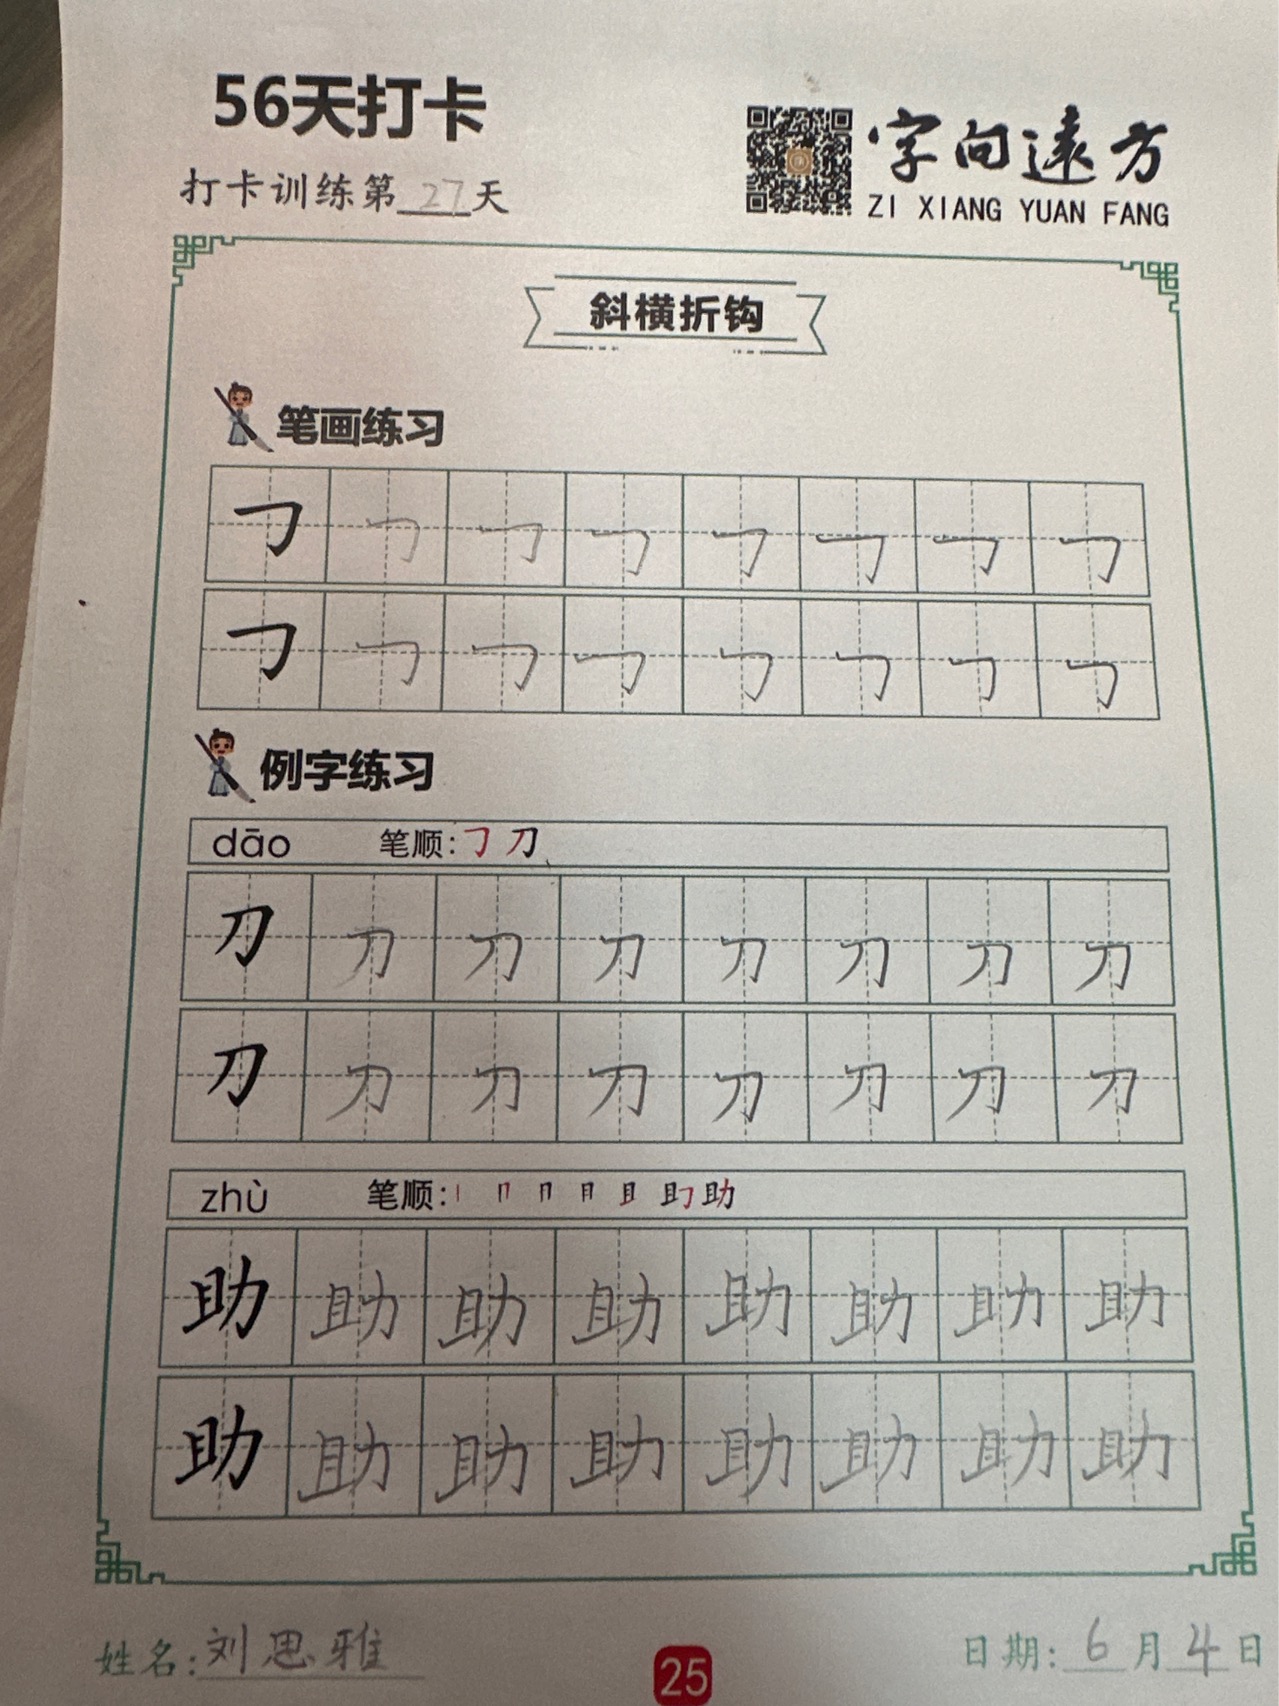 56天打卡
打卡训练第27天
字向遠方
ZI XIANG YUAN FANG
斜横折钩
笔画练习
㇆ ㇆ ㇆ ㇆ ㇆ ㇆ ㇆ ㇆
㇆ ㇆ ㇆ ㇆ ㇆ ㇆ ㇆ ㇆
例字练习
dāo 笔顺:㇆ 刀
刀 刀 刀 刀 刀 刀 刀 刀
刀 刀 刀 刀 刀 刀 刀 刀
zhù 笔顺:丨 冂 ⺆ 月 且 助
助 助 助 助 助 助 助 助
助 助 助 助 助 助 助 助
姓名:刘思雅
25
日期:6月4日